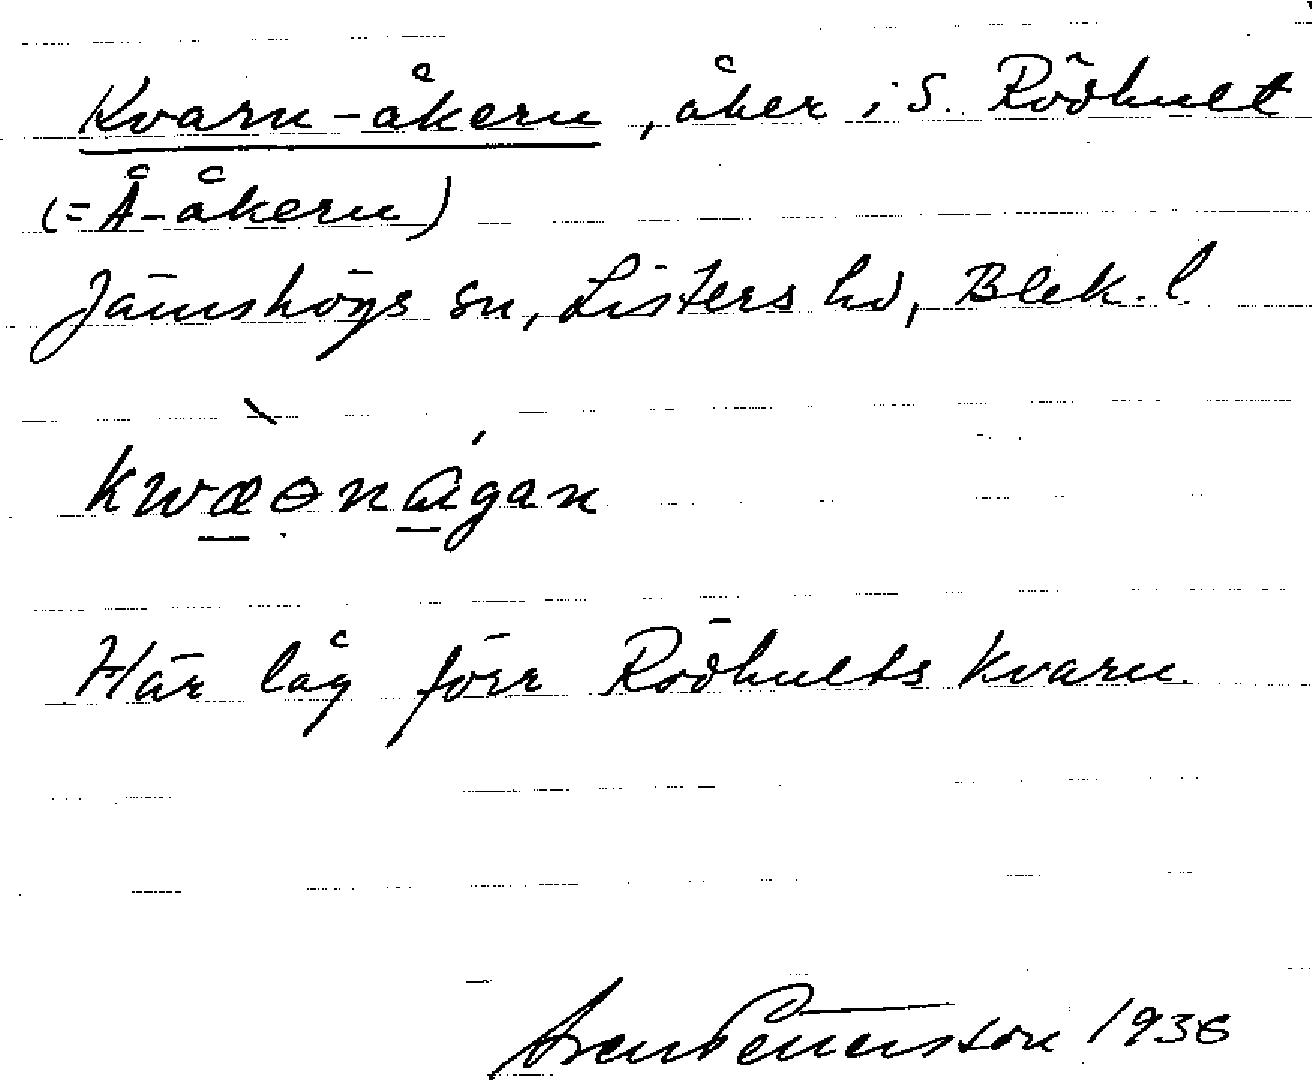 Kvarn-åkern, åker i S. Rödhult
(= Å-åkern)
Jämshögs sn, Listers hd, Blek. l.
Här låg förr Rödhults kvarn.
Pettersson 1936